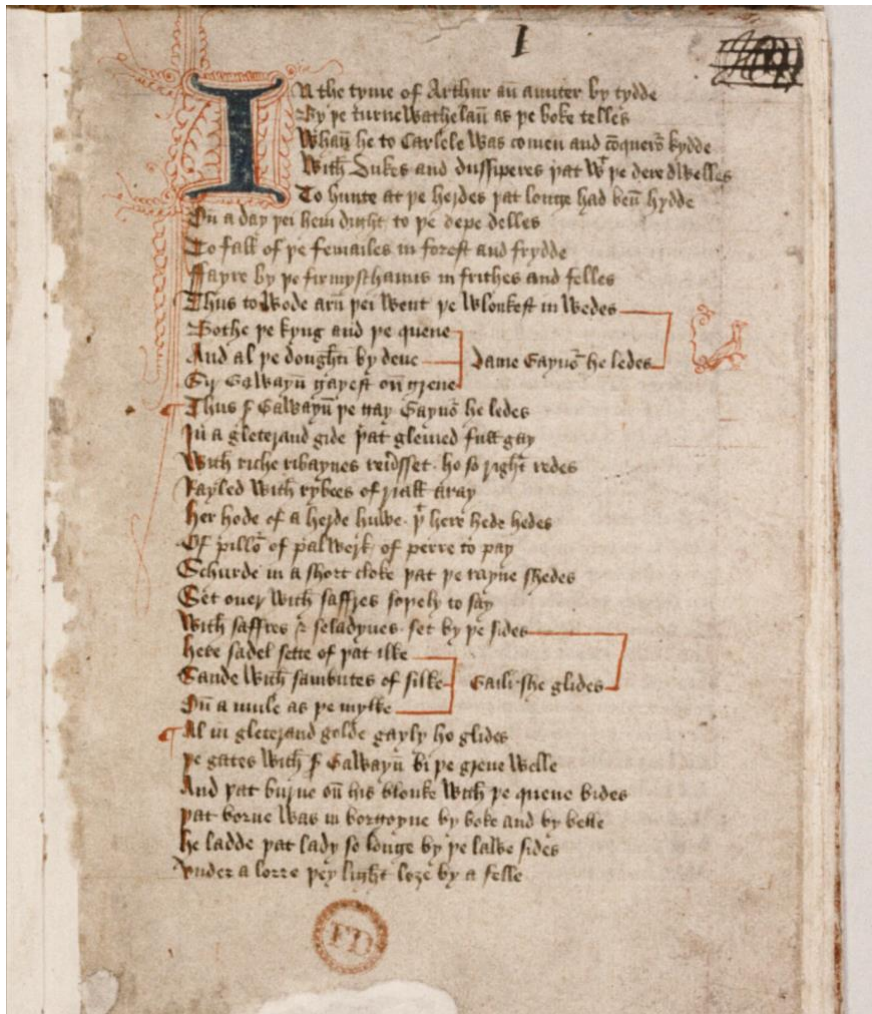 I
In the tyme of Arthur an aunter by tydde
By þe turne Wathelan as þe boke telles
Whan he to Carlele was comen and conquers kydde
With dukes and dussiperes þat wt þe dere dwelles
To hunte at þe herdes þat longe had ben hydde
On a day þei hem dight to þe depe delles
To fall of þe femailes in forest and frydde
Ffayre by þe firmysthamis in frithes and felles
Thus to wode arn þei went þe wlonkest in wedes
Bothe þe kyng and þe quene
And al þe doughti by dene
Dame Gaynor he ledes
Sir Gawayn gayest on grene
Thus s Gawayn þe gay Gaynor he ledes
In a gleterand gide þat glemed full gay
With riche ribaynes reidsset ho so right redes
Rayled with rybees of riall aray
Her hode of a herde huwe þt here hede hedes
Of pillor of palwerk of perre to pay
Schurde in a short cloke þat þe rayne shedes
Set ouer with saffres soþely to say
With saffres & seladynes set by þe sides
Here sadel sette of þat ilke
Saude with sambutes of silke
Gaili she glides
On a mule as þe mylke
Al in gleterand golde gayly ho glides
þe gates with s Gawayn bi þe grene welle
And þat burne on his blonke with þe quene bides
þat borne was in borgoyne by boke and by belle
He ladde þat lady so longe by þe lawe sides
Vnder a lorre þey light loze by a felle
FD